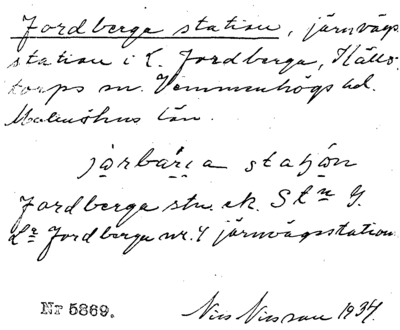 Jordberga station, järnvägs
station i K. Jordberga, Källs
torps sn. Vemmenhögs hd.
Malmöhus län.
Jordberga stn. ek. Stn G.
Lr Jordberga nr. 4 järnvägsstation
Nr 5869.
Nils Nilsson 1934.